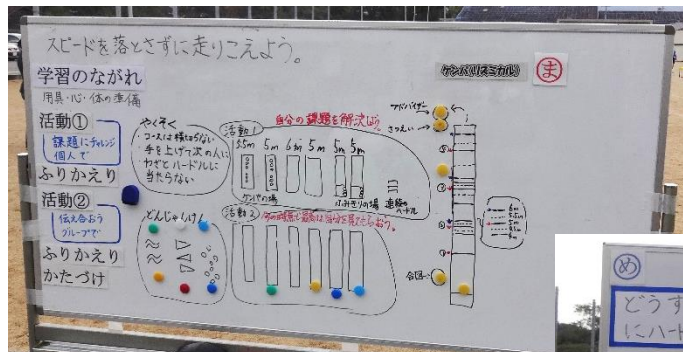 スピードを落とさずに走りこえよう。
学習のながれ
用具・心・体の準備
活動①
課題にチャレンジ
個人で
ふりかえり
活動②
伝え合おう
グループで
ふりかえり
かたづけ
やくそく
・コースは横切らない
・手を上げて次の人に
ハードルに
当たらない
どんじゃんけん
活動1
自分の課題を解決しよう。
5.5m 5m 6m 5m 5m 5m
ケンパの場
ふみきりの場
連続の
ハードル
活動2
ケンパ(リズミカル)
ま
アドバイザー
さつえい
合図
め
どうす
にハー